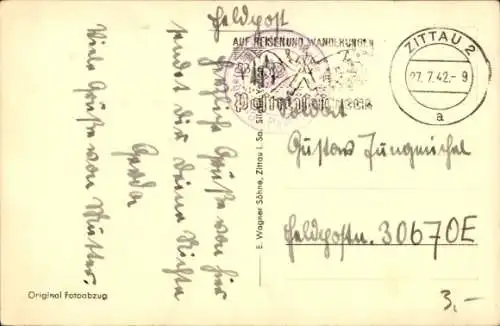 Feldpost
AUF REISEN UND WANDERUNGEN
ZITTAU 2
27.7.42.-9
a
Soldat
Gustav Jungmichel
Feldpostn. 30670E
3,-
Herzliche Grüße von hier
sendet dir deine Nichte
Gerda
Viele Grüße von Mutter.
E. Wagner Söhne, Zittau i. Sa.
Original Fotoabzug